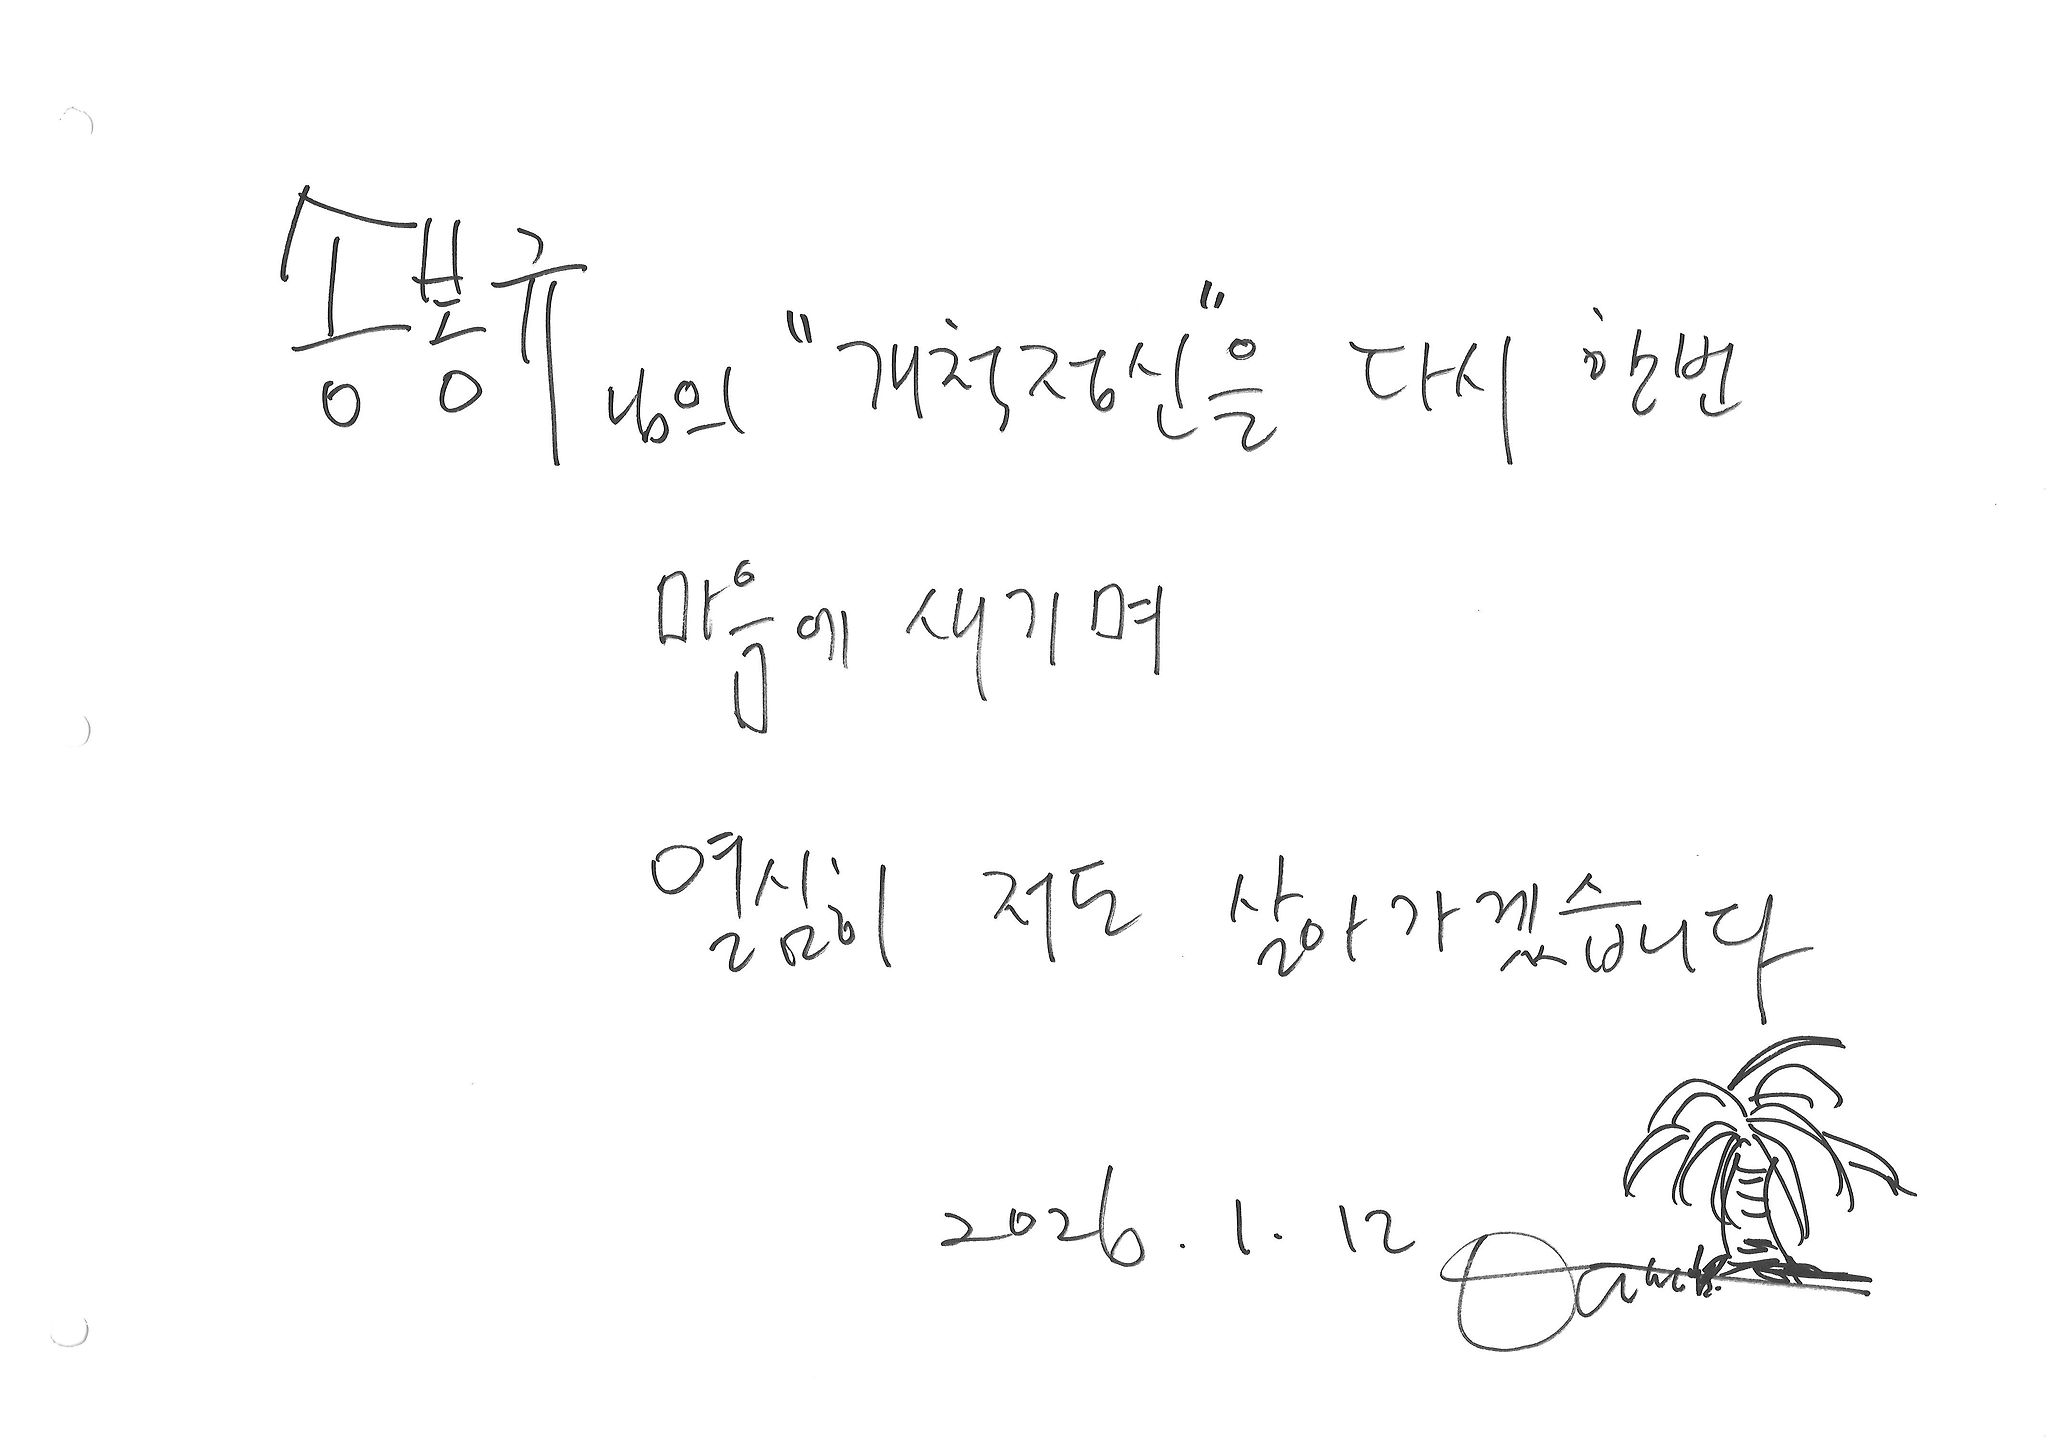 송봉규님의 "개척정신"을 다시 한번
마음에 새기며
열심히 저도 살아가겠습니다
2026. 1. 12